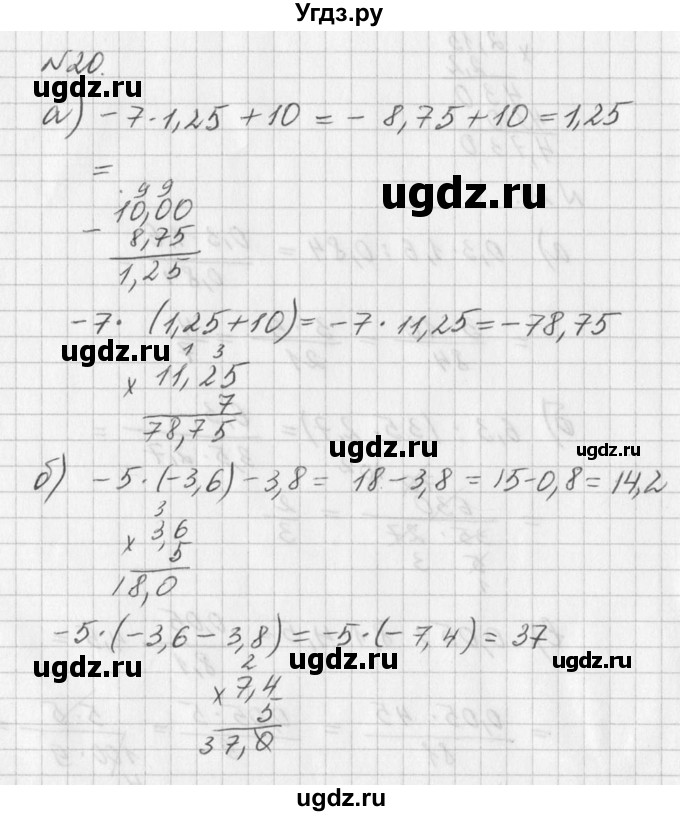 Угдз.ру
№20.
ugdz.ru
а) -7·1,25+10 = -8,75+10 = 1,25
=
ugdz.ru
. 9 9
10,00
- 8,75
1,25
-7· (1,25+10) = -7·11,25 = -78,75
ugdz.ru
1 3
11,25
× 7
78,75
ugdz.ru
б) -5·(-3,6)-3,8 = 18-3,8 = 15-0,8 = 14,2
ugdz.ru
3
3,6
× 5
18,0
-5·(-3,6-3,8) = -5·(-7,4) = 37
ugdz.ru ugdz.ru ugdz.ru
2
7,4
× 5
37,0
ugdz.ru